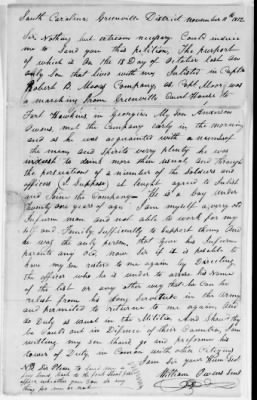 South Carolina Greenville District November 8th 1812
Sir Nothing but extream necessity Could induce
me to Send you this petition, The purport
of which is On the 18 Day of October last an
only Son that lives with my Inlisted in Capta
Robert B. Moors Company, as Capt Moor, was
a marching from Greenville Court House to
Fort Hawkins in Georgia, My Son Anderson
Owens, met the Company Early in the morning
and as he was aquainted with a number of
the men and Spirits very plenty he was
induced to drink more than usual, and through
the persuation of a number of the Soldiers and
officers (I Suppose) at lenght agreed to Inlist
and Join the Campaign He is a boy under
twenty one years of age I am myself a very old
Infirm man and not able to work for my
self and Family Sufficiently to Support them and
he was the only person that give his Infirm
parents any Aid. Dear Sir if it is posable to
have my Son return to me again by Directing
the officer who he is under to arase his name
of the list or any other way that he Can be
relast from his dony Servitude in the Army
and permitted to return to me again, and
do Duty as usual in the Militia And Should they
be Calld out in Difence of their Countrey, I am
willing my son Should go and preforms his
towers of Duty in Common with other Citizens
I am Sir your Hum Svt
William Owens Senr
NB